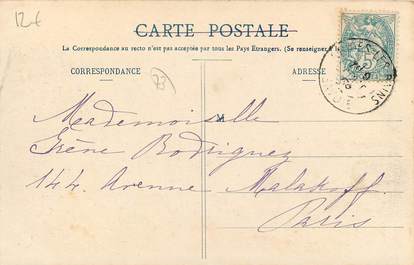 12€
CARTE POSTALE
La Correspondance au recto n'est pas acceptée par tous les Pays Etrangers. (Se renseigner
CORRESPONDANCE
73
ADRESSE
5
BAINS
Mademoiselle
Irène Rodriguez
144. Avenue Malakoff.
Paris